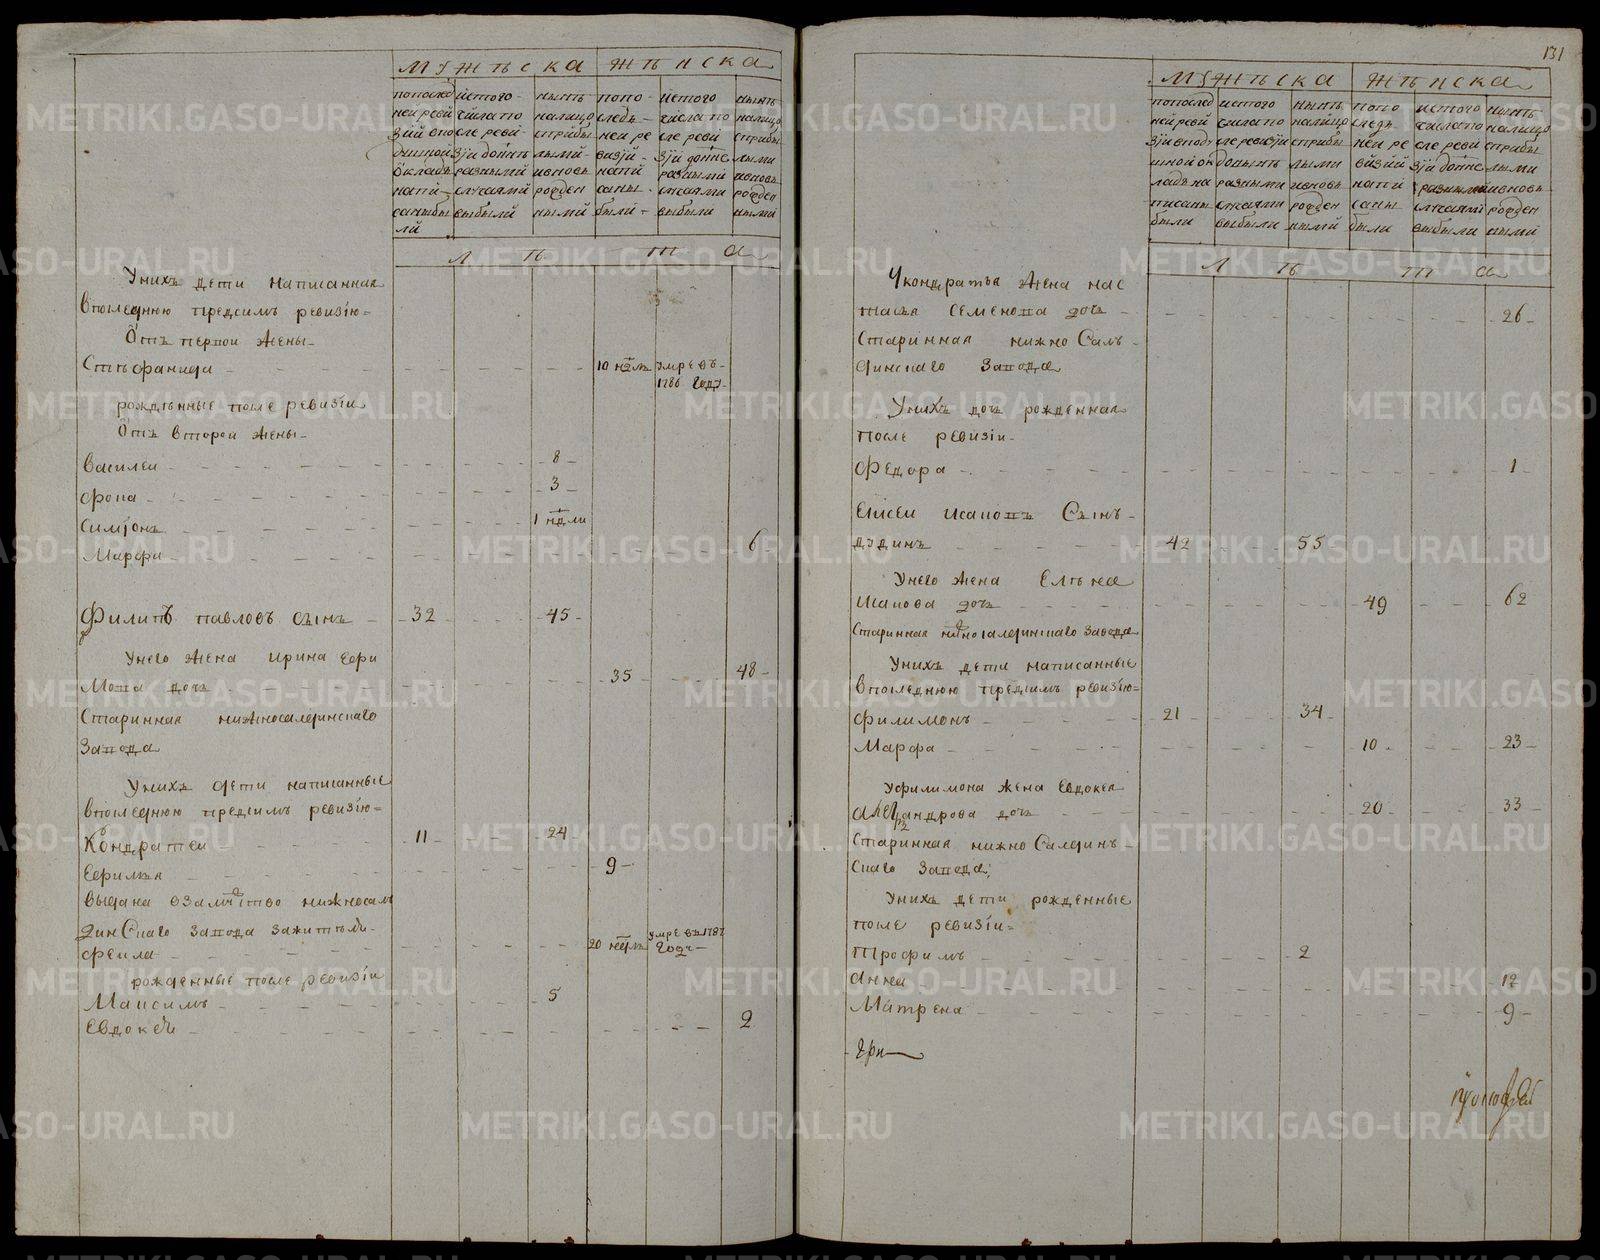 мужеска
женска
попослед
ней реви
зии по
душной
окладъ
напи
саны бы
ли
изтого
числа по
сле реви
зiи до нынѣ
разными
случаями
выбыли
нынѣ
налицо
с прибы
лыми
и вновь
рожден
ными
попо
след
ней ре
визiи
напи
саны
были
изтого
числа по
сле реви
зiи до нынѣ
разными
случаями
выбыли
нынѣ
налицо
с прибы
лыми
и вновь
рожден
ными
лѣта
Унихъ дети написанная
впоследнюю предсимъ ревизiю
Отъ первой жены
Стефанида 10 недѣль умре въ
1786 году
рожденные после ревизiи
Отъ второй жены
Василеи 8
фока 3
Симiонъ 1 недѣли
Марфа 6
Филипъ павловъ сынъ 32 45
Унего жена ирина ефи
мова дочь 35 48
Старинная нижносалдинскаго
Завода
Унихъ дети написанные
впоследнюю предсимъ ревизiю
Кондратеи 11 24
Ефимья 9
выдана взамужство нижносал
динскаго завода зажитель
фекла 20 недѣль умре въ 1787
году
рожденные после ревизiи
Максимъ 5
Евдокея 2
131
мужеска
женска
попослед
ней реви
зiи в поду
шной ок
ладъ на
писаны
были
изтого
числа по
сле ревизiи
до нынѣ
разными
случаями
выбыли
нынѣ
налицо
с прибы
лыми
и вновь
рожден
ными
попо
следъ
ней ре
визiи
напи
саны
были
изтого
числа по
сле реви
зiи до нынѣ
разными
случаями
выбыли
нынѣ
налицо
с прибы
лыми
и вновь
рожден
ными
лѣта
Укондратья жена нас
тасья семенова дочь 26
Старинная нижно Салъ
динскаго Завода
Унихъ дочь рожденная
после ревизiи
Федора 1
Елисеи исаковъ Сынъ
дудинъ 42 55
Унего жена Елена
исакова дочь 49 62
Старинная нижносалдинскаго завода
Унихъ дети написанные
впоследнюю предсимъ ревизiю
филимонъ 21 34
Марфа 10 23
Уфилимона жена Евдокея
Александрова дочь 20 33
Старинная нижно Салдинъ
скаго Завода
Унихъ дети рожденные
после ревизiи
Трофимъ 2
Анна 12
Матрена 9